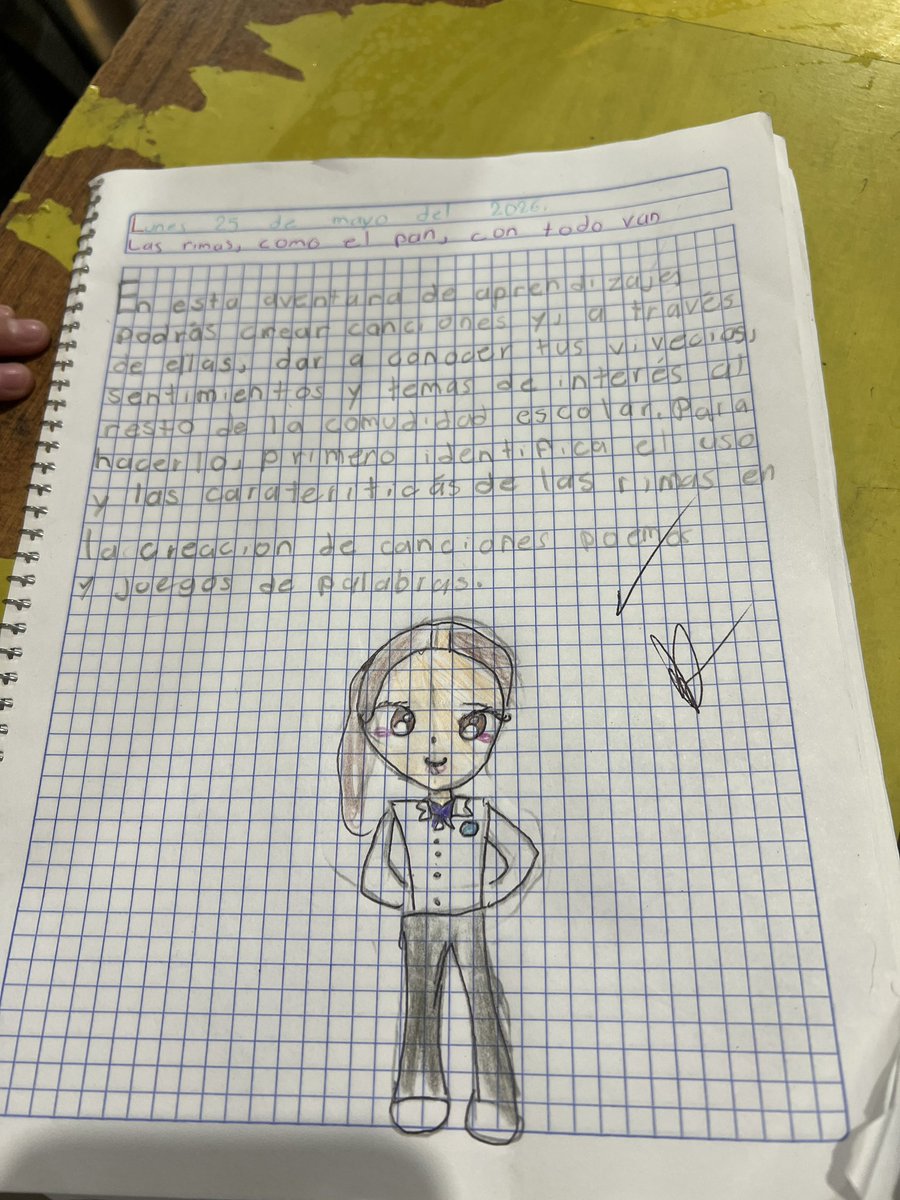 Lunes 25 de mayo del 2026.
Las rimas, como el pan, con todo van
En esta aventura de aprendizajes
podrás crear canciones y, a través
de ellas, dar a conocer tus vivecios,
sentimientos y temas de interés al
resto de la comudidad escolar. Para
hacerlo, primero identifica el uso
y las carateríticas de las rimas en
la creacion de canciones poemos
y juegos de palabras.